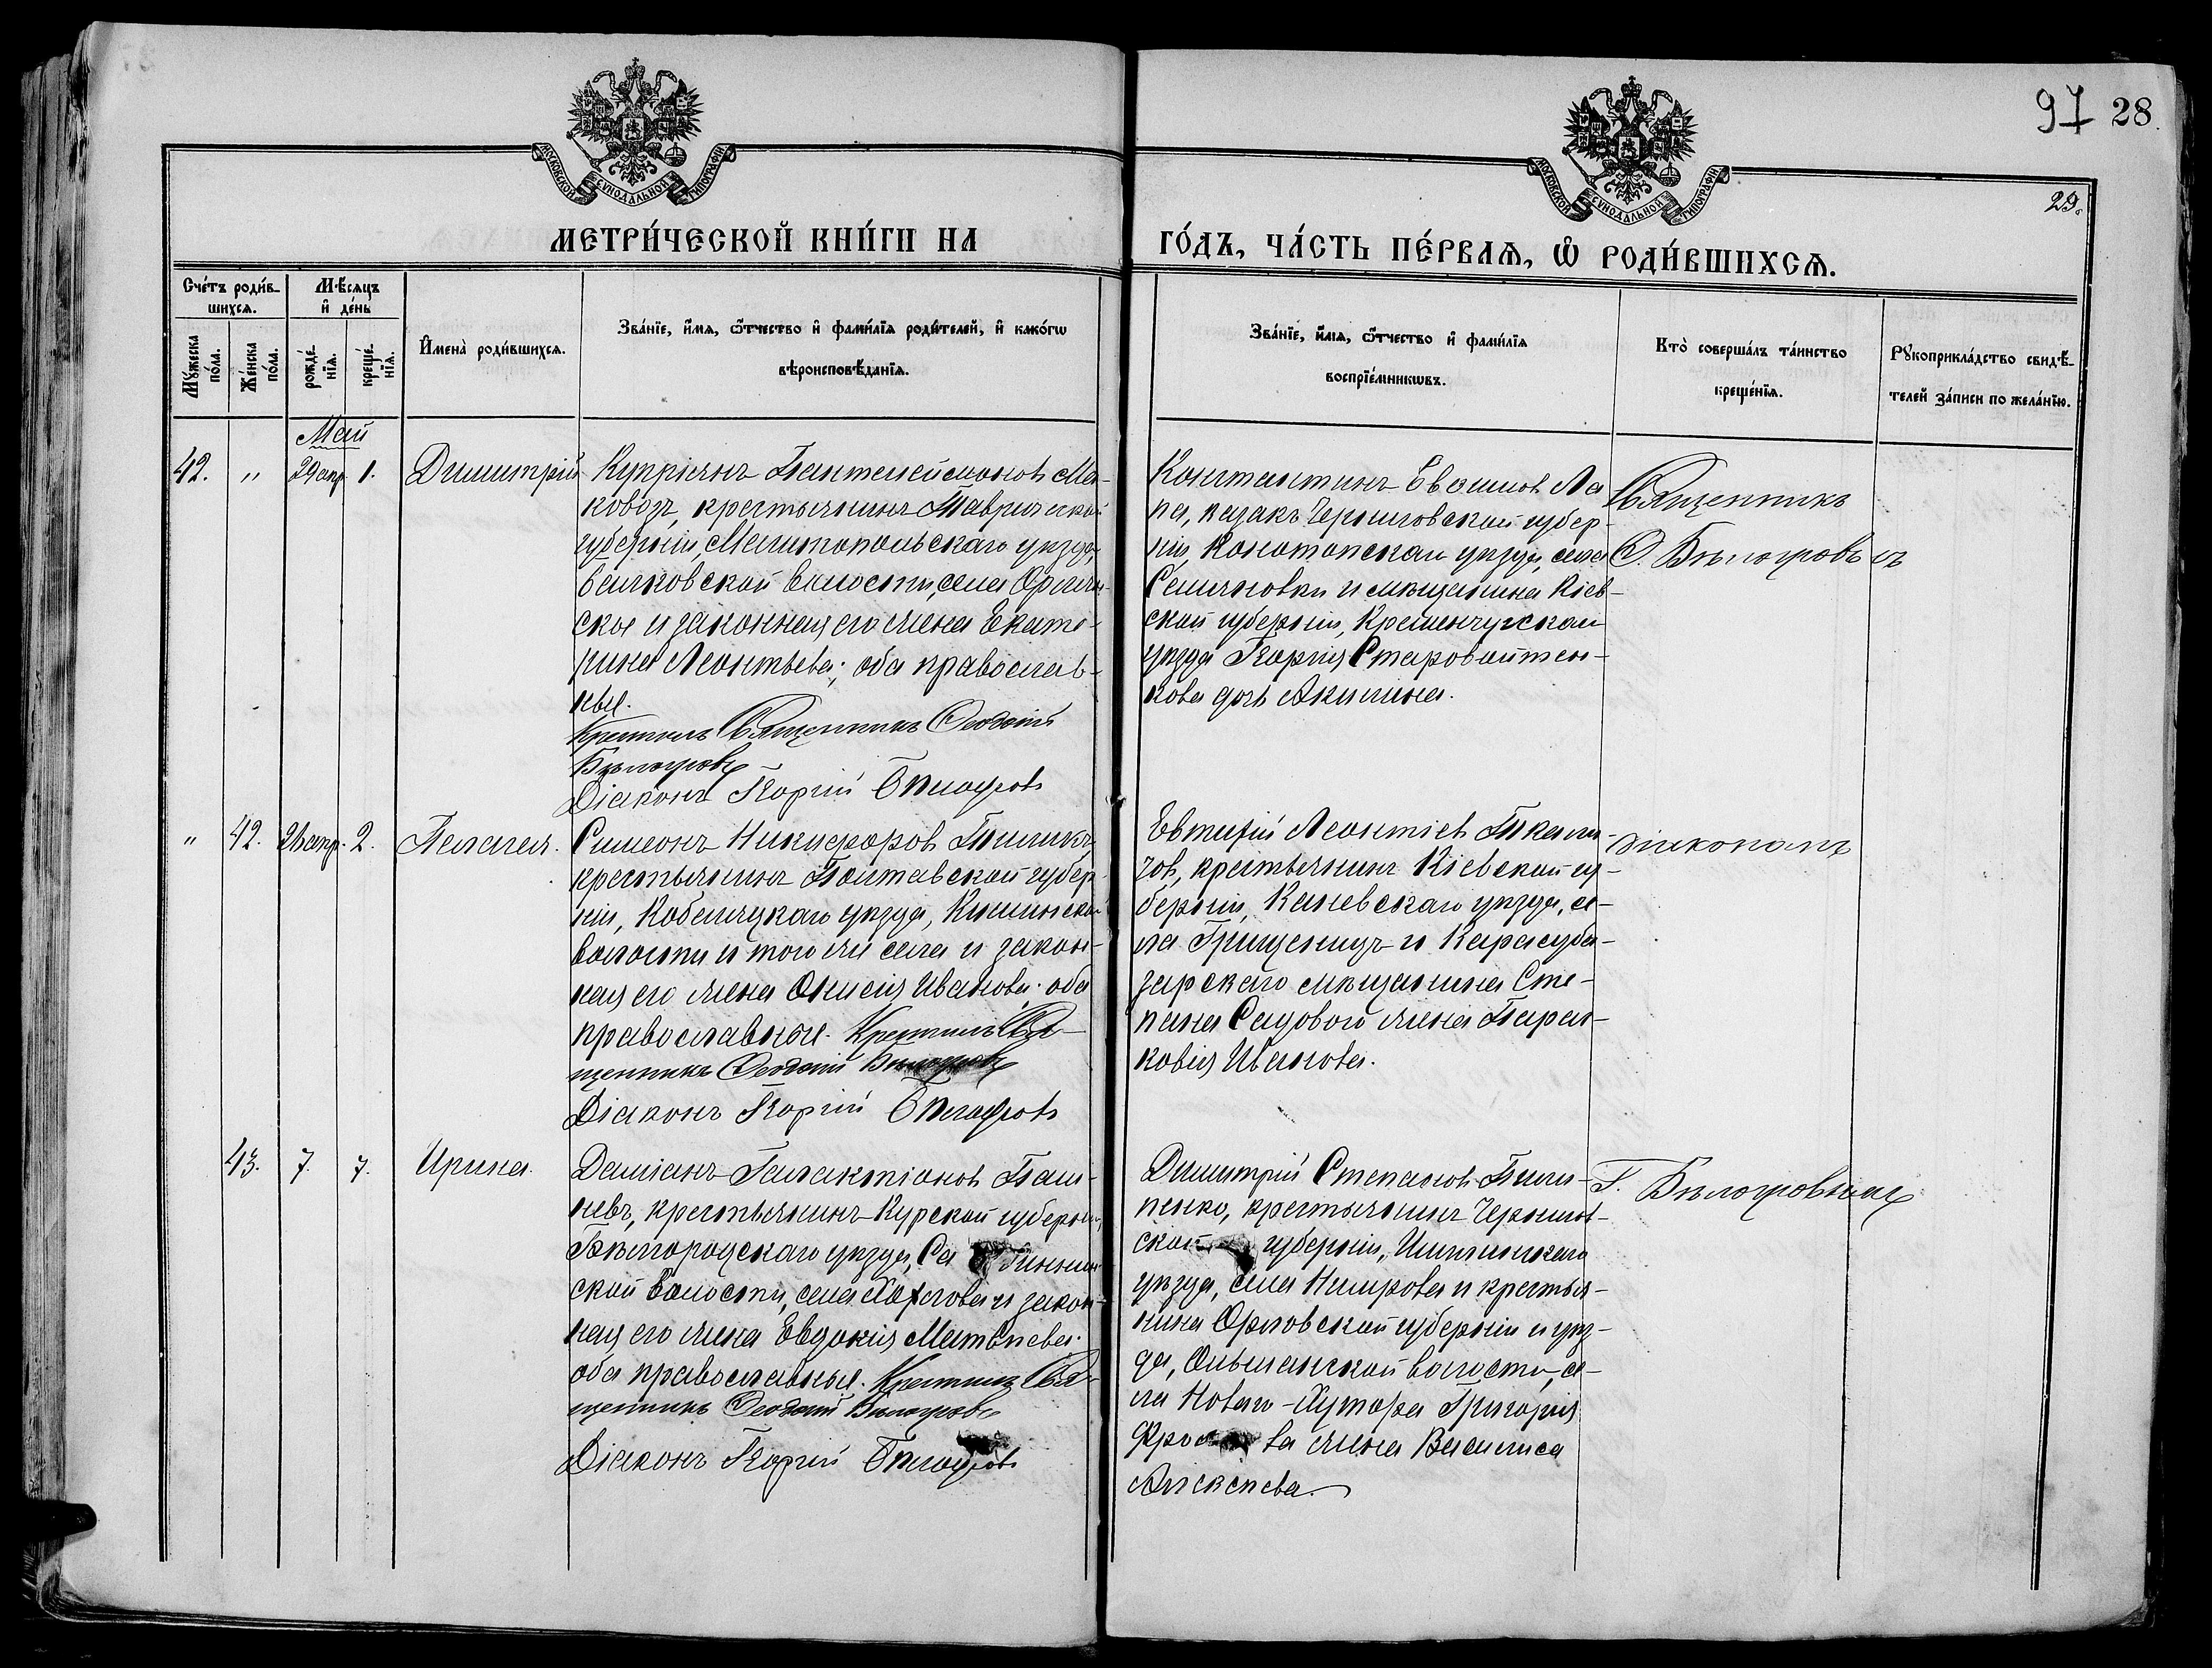 97 28
29.
МОСКОВСКОЙ СѴНОДАЛЬНОЙ ТИПОГРАФІИ
МОСКОВСКОЙ СѴНОДАЛЬНОЙ ТИПОГРАФІИ
МЕТРИ́ЧЕСКОЙ КНИ́ГИ НА
ГО́ДЪ, ЧА́СТЬ ПЕ́РВАѦ, Ѡ҆ РОДИ́ВШИХСѦ.
Сче́тъ роди́в-
шихсѧ.
Мꙋ́жеска по́ла.
Же́нска по́ла.
Мѣ́сѧцъ
и҆ де́нь
рожде́-нїѧ.
креще́-нїѧ.
И҆мена̀ роди́вшихсѧ.
Зва́нїе, и҆́мѧ, ѻ҆́тчество и҆ фами́лїѧ роди́телей, и҆ како́гѡ
вѣроисповѣ́данїѧ.
Зва́нїе, и҆́мѧ, ѻ҆́тчество и҆ фами́лїѧ
воспрїе́мникѡвъ.
Кто̀ соверша́лъ та́инство
креще́нїѧ.
Рꙋкоприкла́дство свидѣ́-
телей за́писи по жела́нїю.
Май
42. " 29 апр. 1. Димитрій
Купріянъ Пантелеймоновъ Ма-
ковозъ, крестьянинъ Таврической
губерніи, Мелитопольскаго уѣзда,
волости, села
ское и законная его жена Екате-
рина Леонтьева; оба православ-
ные.
Крестилъ Священникъ Ѳеодосій
Бѣлогровъ
Діаконъ Георгій Бѣлогровъ
Константинъ Ла-
па, казакъ Черниговской губер-
ніи, Конотопскаго уѣзда, села
Семяновки и мѣщанина Кіев-
ской губерніи, Кременчугскаго
уѣзда Георгія Старовойтен-
кова дочь Акилина.
Священникъ
Ѳ. Бѣлогровъ съ
" 42. 26 апр. 2. Пелагея.
Симеонъ Никифоровъ
крестьянинъ Полтавской губер-
ніи, Кобеляцкаго уѣзда,
волости и того же села и закон-
ная его жена Ѳеклисія Иванова; оба
православные. Крестилъ Свя-
щенникъ Ѳеодосій Бѣлогровъ
Діаконъ Георгій Бѣлогровъ
Евтихій Леонтіевъ
крестьянинъ Кіевской гу-
берніи, Каневскаго уѣзда, се-
ла Грищенецъ и Карасуба-
зарскаго мѣщанина Сте-
пана Садового жена Парас-
ковія Иванова.
діакономъ
43. 7. 7. Ирина.
Даміанъ Галактіоновъ
крестьянинъ Курской губерніи,
Бѣлгородскаго уѣзда,
ской волости, села и закон-
ная его жена Евдокія Матвѣева;
оба православные. Крестилъ Свя-
щенникъ Ѳеодосій Бѣлогровъ
Діаконъ Георгій Бѣлогровъ
Димитрій Степановъ Пили-
пенко, крестьянинъ Чернигов-
ской губерніи,
уѣзда, села и крестья-
нина Орловской губерніи и уѣз-
да, Ольшанской волости, се-
ла Новаго-Хутора Григорія
жена Василиса
Алексѣева.
Г. Бѣлогровымъ